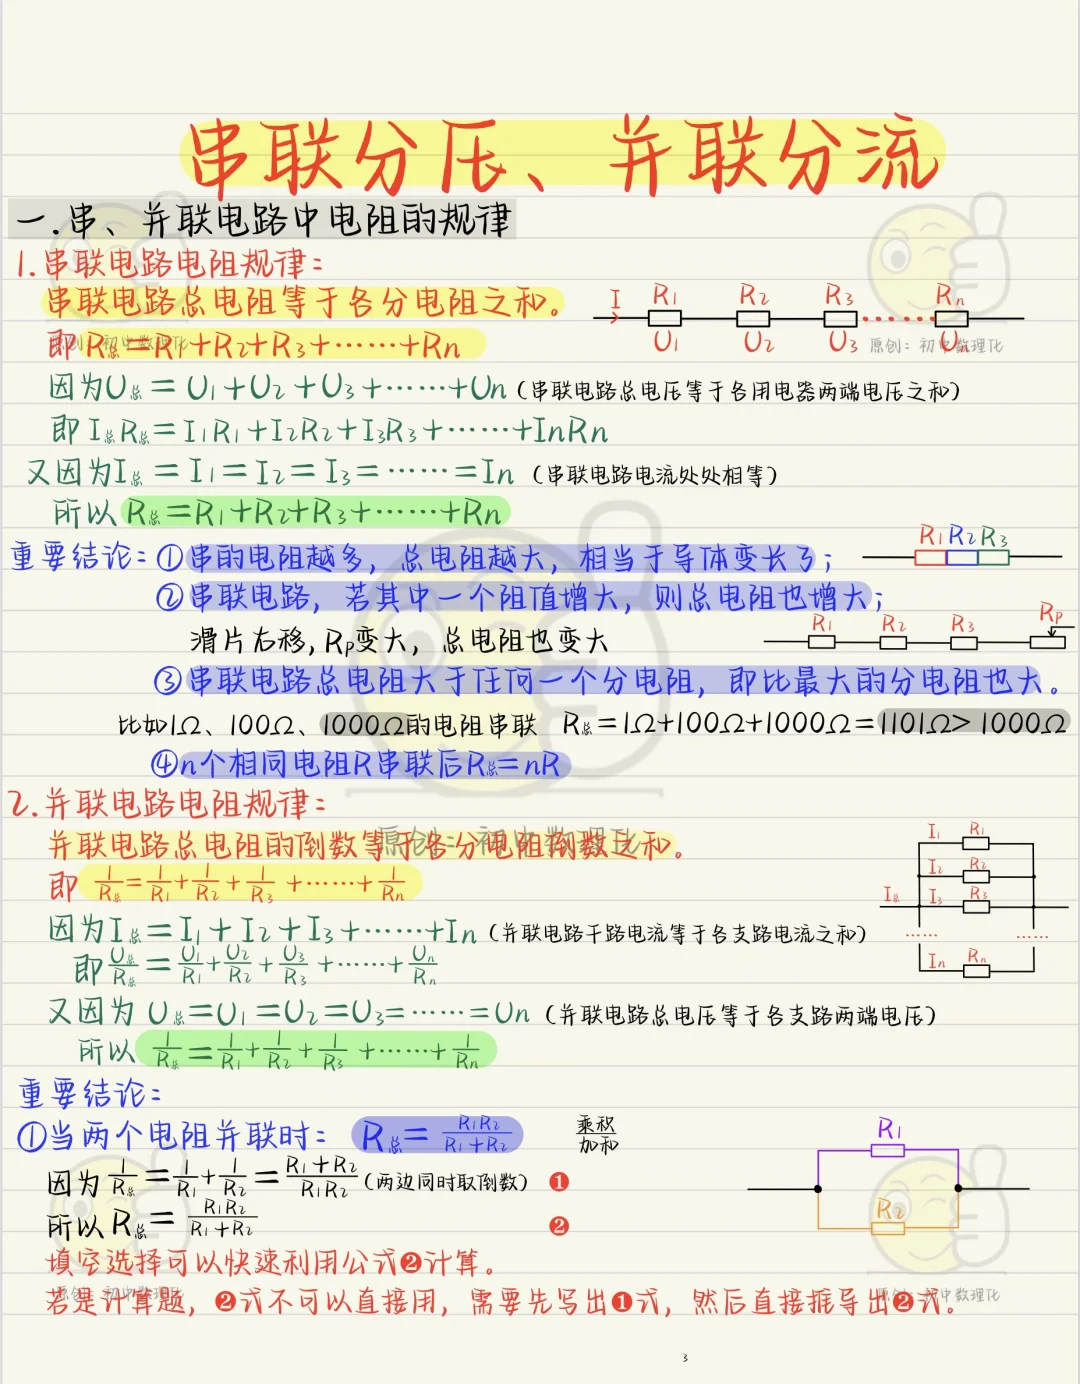 串联分压、并联分流
一.串、并联电路中电阻的规律
1.串联电路电阻规律：
串联电路总电阻等于各分电阻之和。
即R总=R1+R2+R3+……+Rn
I R1 R2 R3 Rn
U1 U2 U3 Un
原创：初中数理化
原创：初中数理化
因为U总=U1+U2+U3+……+Un（串联电路总电压等于各用电器两端电压之和）
即I总R总=I1R1+I2R2+I3R3+……+InRn
又因为I总=I1=I2=I3=……=In（串联电路电流处处相等）
所以R总=R1+R2+R3+……+Rn
重要结论：①串的电阻越多，总电阻越大，相当于导体变长了；
R1R2R3
②串联电路，若其中一个阻值增大，则总电阻也增大；
滑片右移，Rp变大，总电阻也变大
R1 R2 R3 Rp
③串联电路总电阻大于任何一个分电阻，即比最大的分电阻也大。
比如1Ω、100Ω、1000Ω的电阻串联 R总=1Ω+100Ω+1000Ω=1101Ω>1000Ω
④n个相同电阻R串联后R总=nR
2.并联电路电阻规律：
原创：初中数理化
并联电路总电阻的倒数等于各分电阻倒数之和。
即 1/R总=1/R1+1/R2+1/R3+……+1/Rn
I1 R1
I2 R2
I总 I3 R3
…… ……
In Rn
因为I总=I1+I2+I3+……+In（并联电路干路电流等于各支路电流之和）
即U总/R总=U1/R1+U2/R2+U3/R3+……+Un/Rn
又因为U总=U1=U2=U3=……=Un（并联电路总电压等于各支路两端电压）
所以 1/R总=1/R1+1/R2+1/R3+……+1/Rn
重要结论：
①当两个电阻并联时：R总=R1R2/R1+R2 乘积/加和
因为1/R总=1/R1+1/R2=R1+R2/R1R2（两边同时取倒数）❶
所以R总=R1R2/R1+R2 ❷
R1
R2
填空选择可以快速利用公式❷计算。
原创：初中数理化
原创：初中数理化
若是计算题，❷式不可以直接用，需要先写出❶式，然后直接推导出❷式。
3